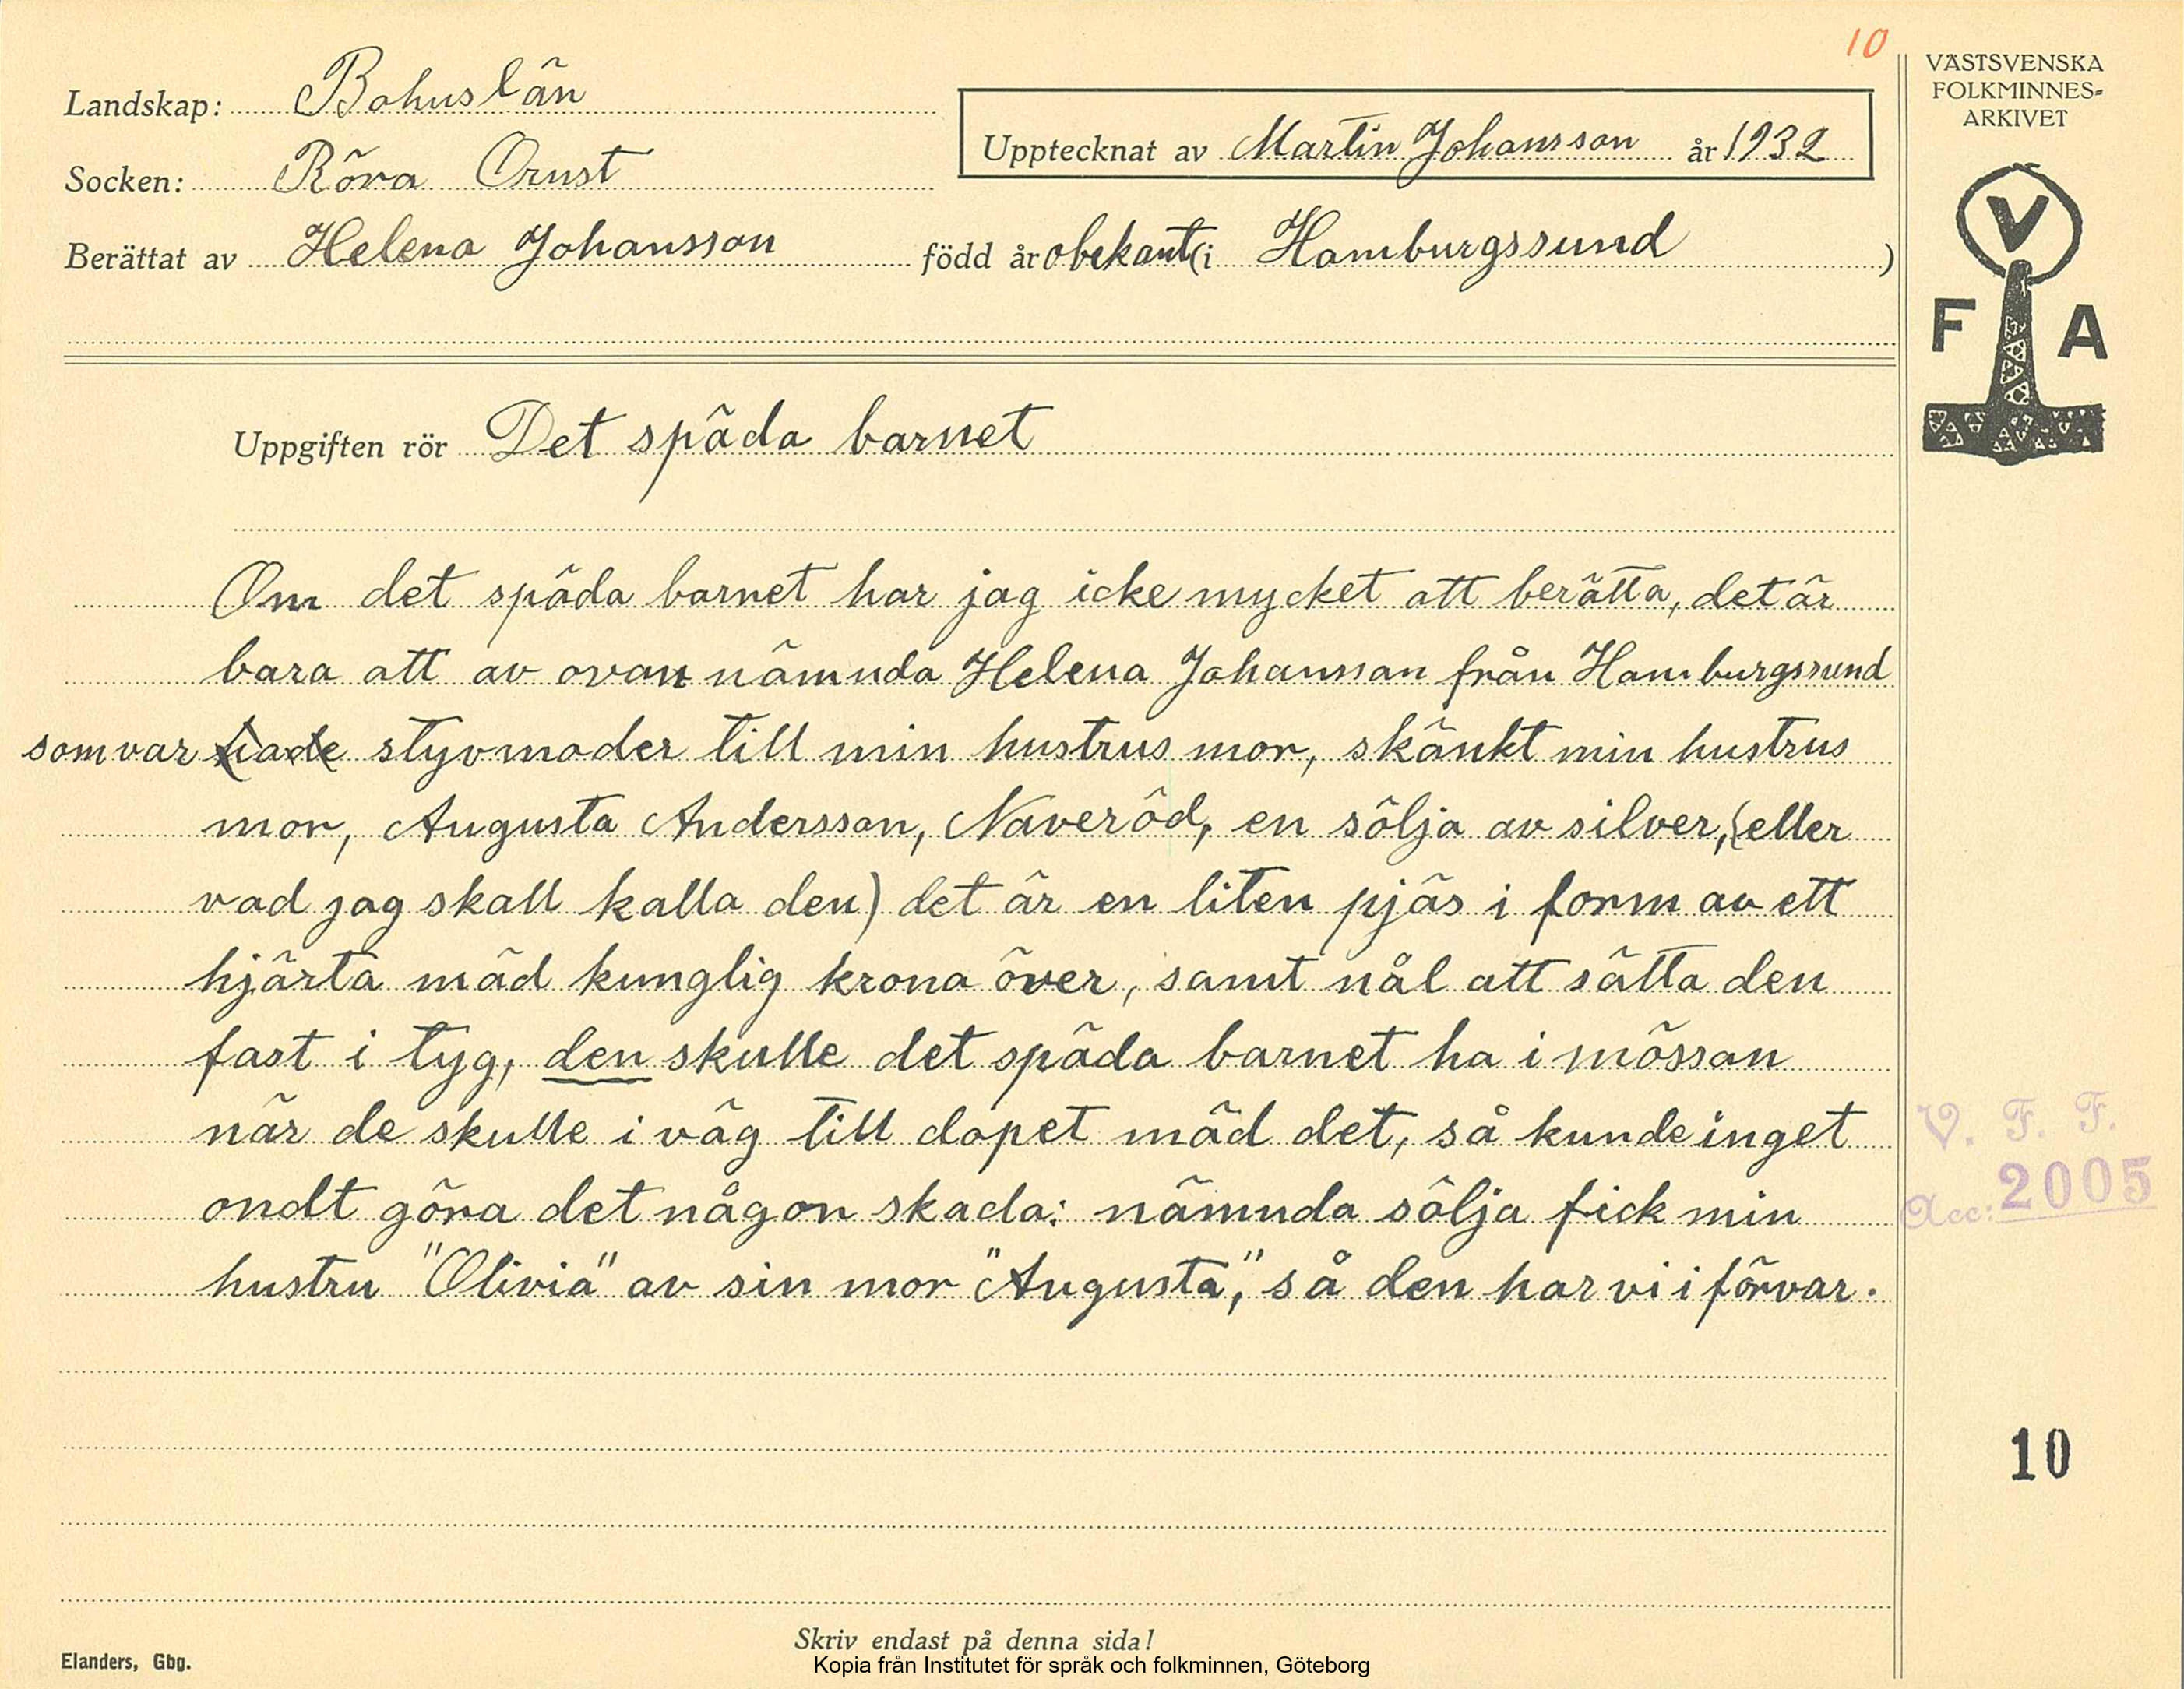 10
VÄSTSVENSKA
FOLKMINNES-
ARKIVET
Landskap: Bohuslän
Upptecknat av Martin Johansson år 1932
Socken: Röra Orust
Berättat av Helena Johansson född år obekant (i Hamburgssund )
V
F A
Uppgiften rör Det späda barnet
Om det späda barnet har jag icke mycket att berätta, det är
bara att av ovan nämnda Helena Johansson från Hamburgssund
som var styvmoder till min hustrus mor, skänkt min hustrus
mor, Augusta Andersson, Naveröd, en sölja av silver, (eller
vad jag skall kalla den) det är en liten pjäs i form av ett
hjärta mäd kunglig krona över, samt nål att sätta den
fast i tyg, den skulle det späda barnet ha i mössan
när de skulle i väg till dopet mäd det, så kunde inget
ondt göra det någon skada: nämnda sölja fick min
hustru "Olivia" av sin mor "Augusta," så den har vi i förvar.
V. F. F.
Acc: 2005
10
Skriv endast på denna sida!
Elanders, Gbg.
Kopia från Institutet för språk och folkminnen, Göteborg